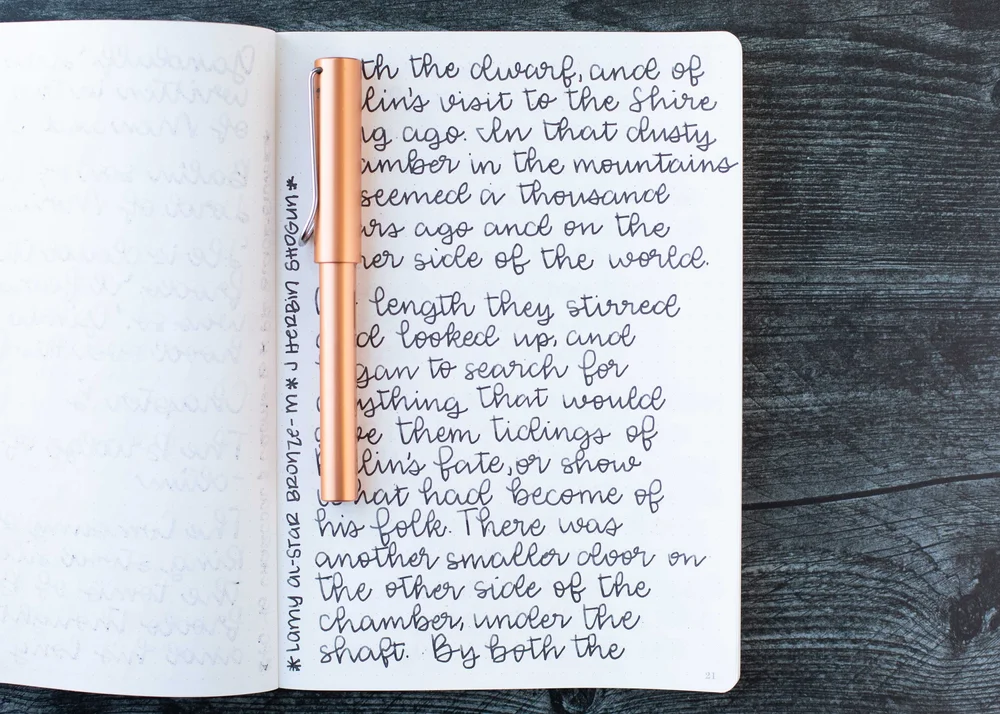 th the dwarf, and of
lin's visit to the Shire
ng ago. In that dusty
amber in the mountains
seemed a thousand
rs ago and on the
her side of the world.
length they stirred
d looked up, and
gan to search for
ything that would
ve them tidings of
lin's fate, or show
what had become of
his folk. There was
another smaller door on
the other side of the
chamber, under the
shaft. By both the
21
*LAMY AL-STAR BRONZE-M* J HERBIN SHOGUN*